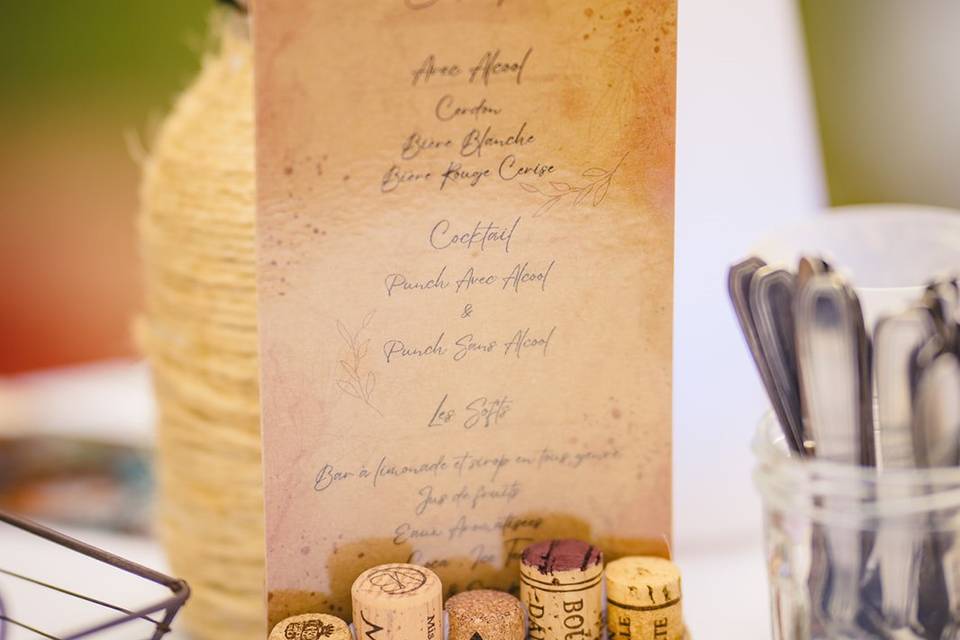 Avec Alcool
Cerdon
Bière Blanche
Bière Rouge Cerise
Cocktail
Punch Avec Alcool
&
Punch Sans Alcool
Les Softs
Bar à limonade et sirop en tous genre
Jus de fruits
Eaux Aromatisées
Coca Ice